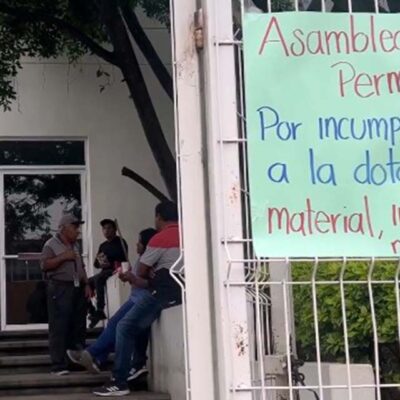 Asamblea
Perm
Por incump
a la dota
material,